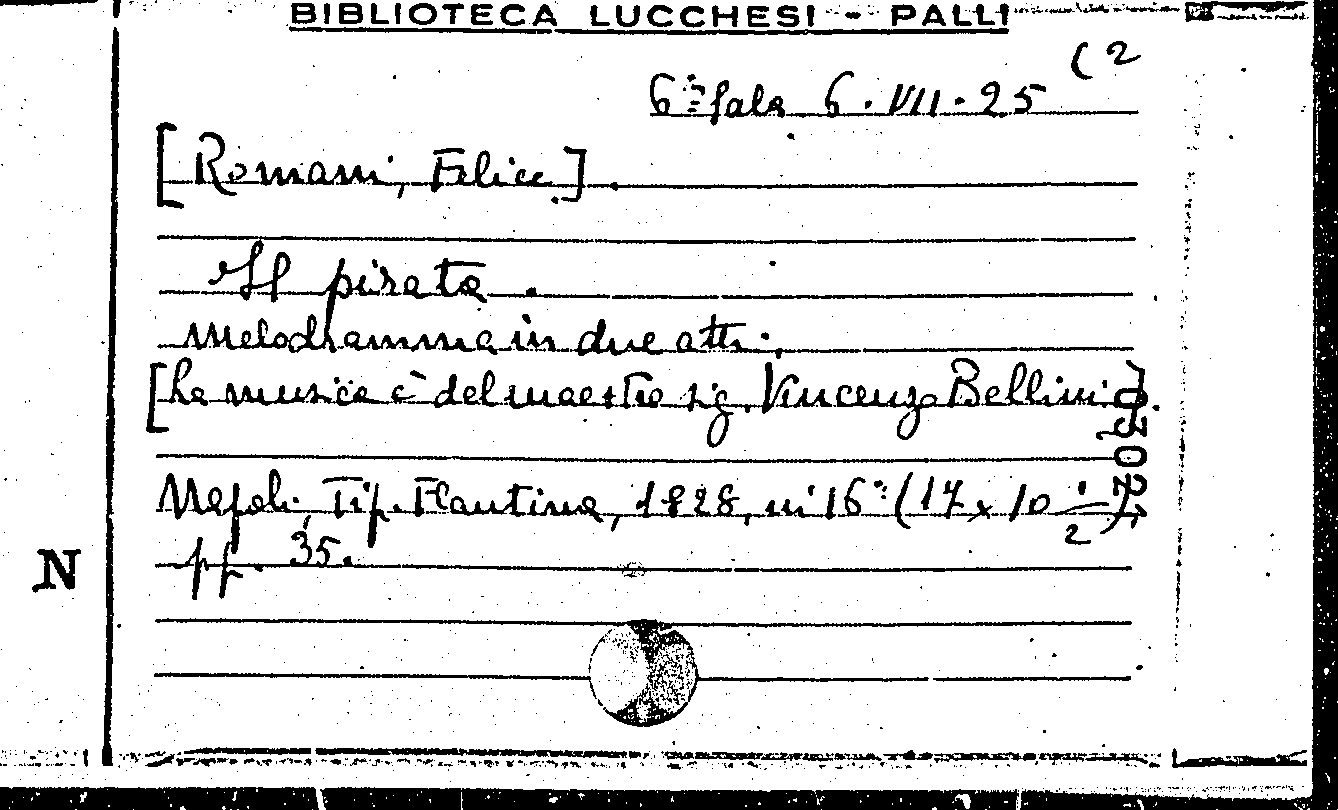 BIBLIOTECA LUCCHESI - PALLI
6ª Sala 6. VII. 25 (2
[Romani, Felice].
Il pirata.
Melodramma in due atti.
[La musica è del maestro sig. Vincenzo Bellini].
Napoli, Tip. Flautina, 1828, in 16° (17 x 10 1/2)
pp. 35.
N